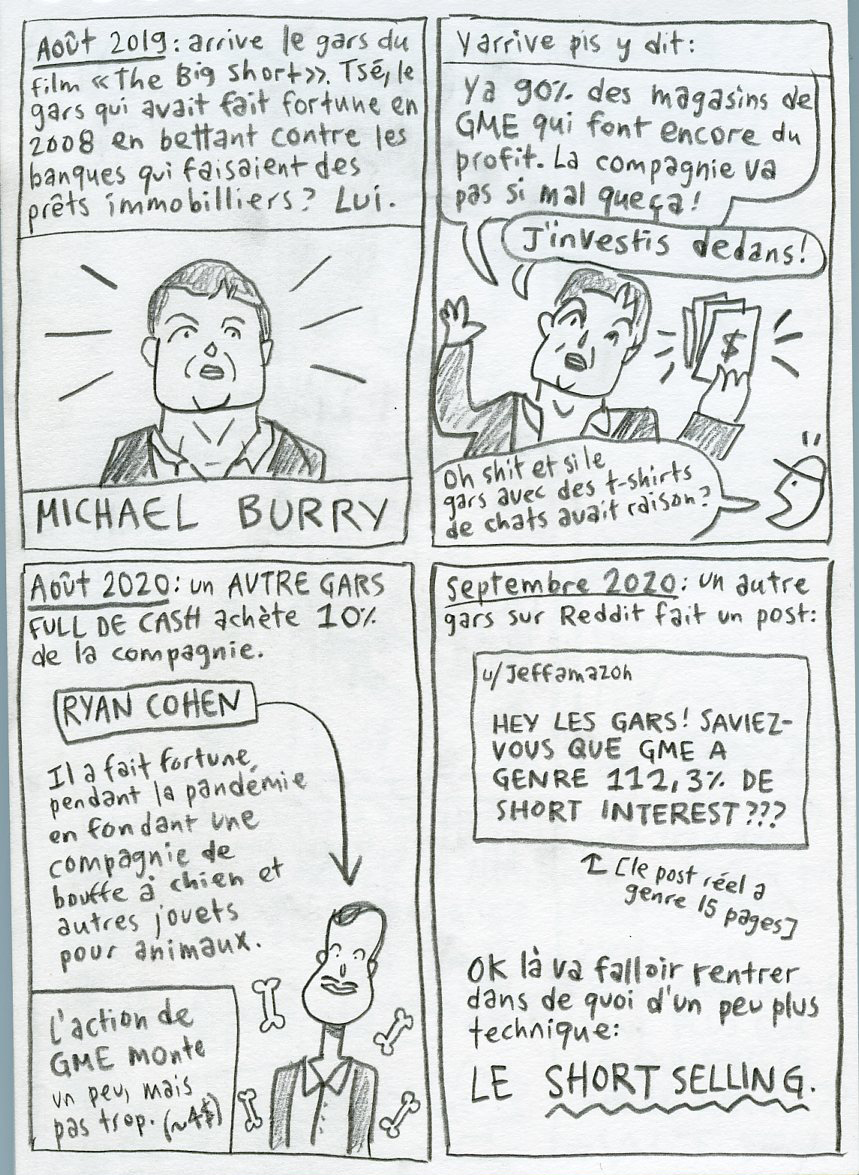 Août 2019: arrive le gars du
film «The Big Short». Tsé, le
gars qui avait fait fortune en
2008 en bettant contre les
banques qui faisaient des
prêts immobilliers? Lui.
MICHAEL BURRY
Y arrive pis y dit:
Ya 90% des magasins de
GME qui font encore du
profit. La compagnie va
pas si mal queça!
J'investis dedans!
$
Oh shit et si le
gars avec des t-shirts
de chats avait raison?
Août 2020: un AUTRE GARS
FULL DE CASH achète 10%
de la compagnie.
RYAN COHEN
Il a fait fortune,
pendant la pandémie
en fondant une
compagnie de
bouffe à chien et
autres jouets
pour animaux.
L'action de
GME monte
un peu, mais
pas trop. (~4$)
Septembre 2020: un autre
gars sur Reddit fait un post:
u/Jeffamazon
HEY LES GARS! SAVIEZ-
VOUS QUE GME A
GENRE 112,3% DE
SHORT INTEREST???
[le post réel a
genre 15 pages]
OK là va falloir rentrer
dans de quoi d'un peu plus
technique:
LE SHORT SELLING.